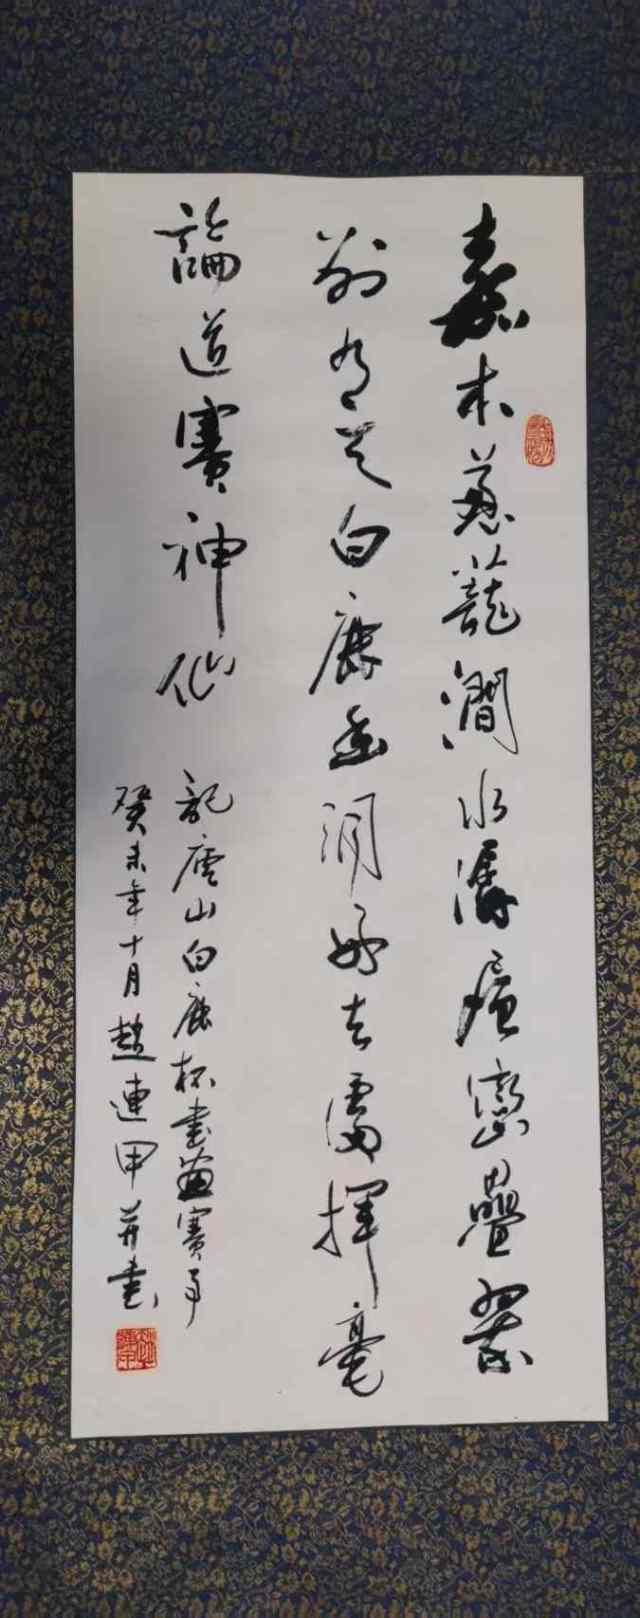 嘉木葱蘢澗水潺層巒疊翠
別有天白鹿幽洞好去處揮毫
論道賽神仙
記廬山白鹿杯書畫賽事
癸未年十月趙連甲并書